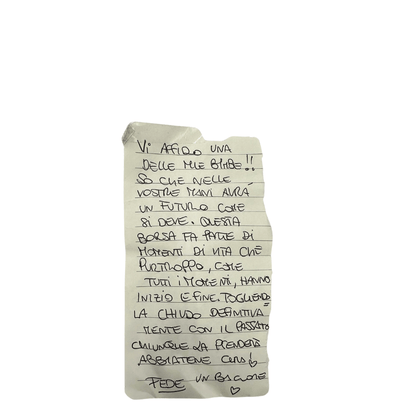 Vi AFFIDO UNA
DELLE MIE BIMBE!!
SO CHE NELLE
VOSTRE MANI AVRÀ
UN FUTURO COME
SI DEVE. QUESTA
BORSA FA PARTE DI
MOMENTI DI VITA CHE
PURTROPPO, COME
TUTTI I MOMENTI, HANNO
INIZIO E FINE. TOGLIENDO
LA CHIUDO DEFINITIVA
MENTE CON IL PASSATO
CHIUNQUE LA PRENDERÀ
ABBIATENE CURA
FEDE UN BACIONE